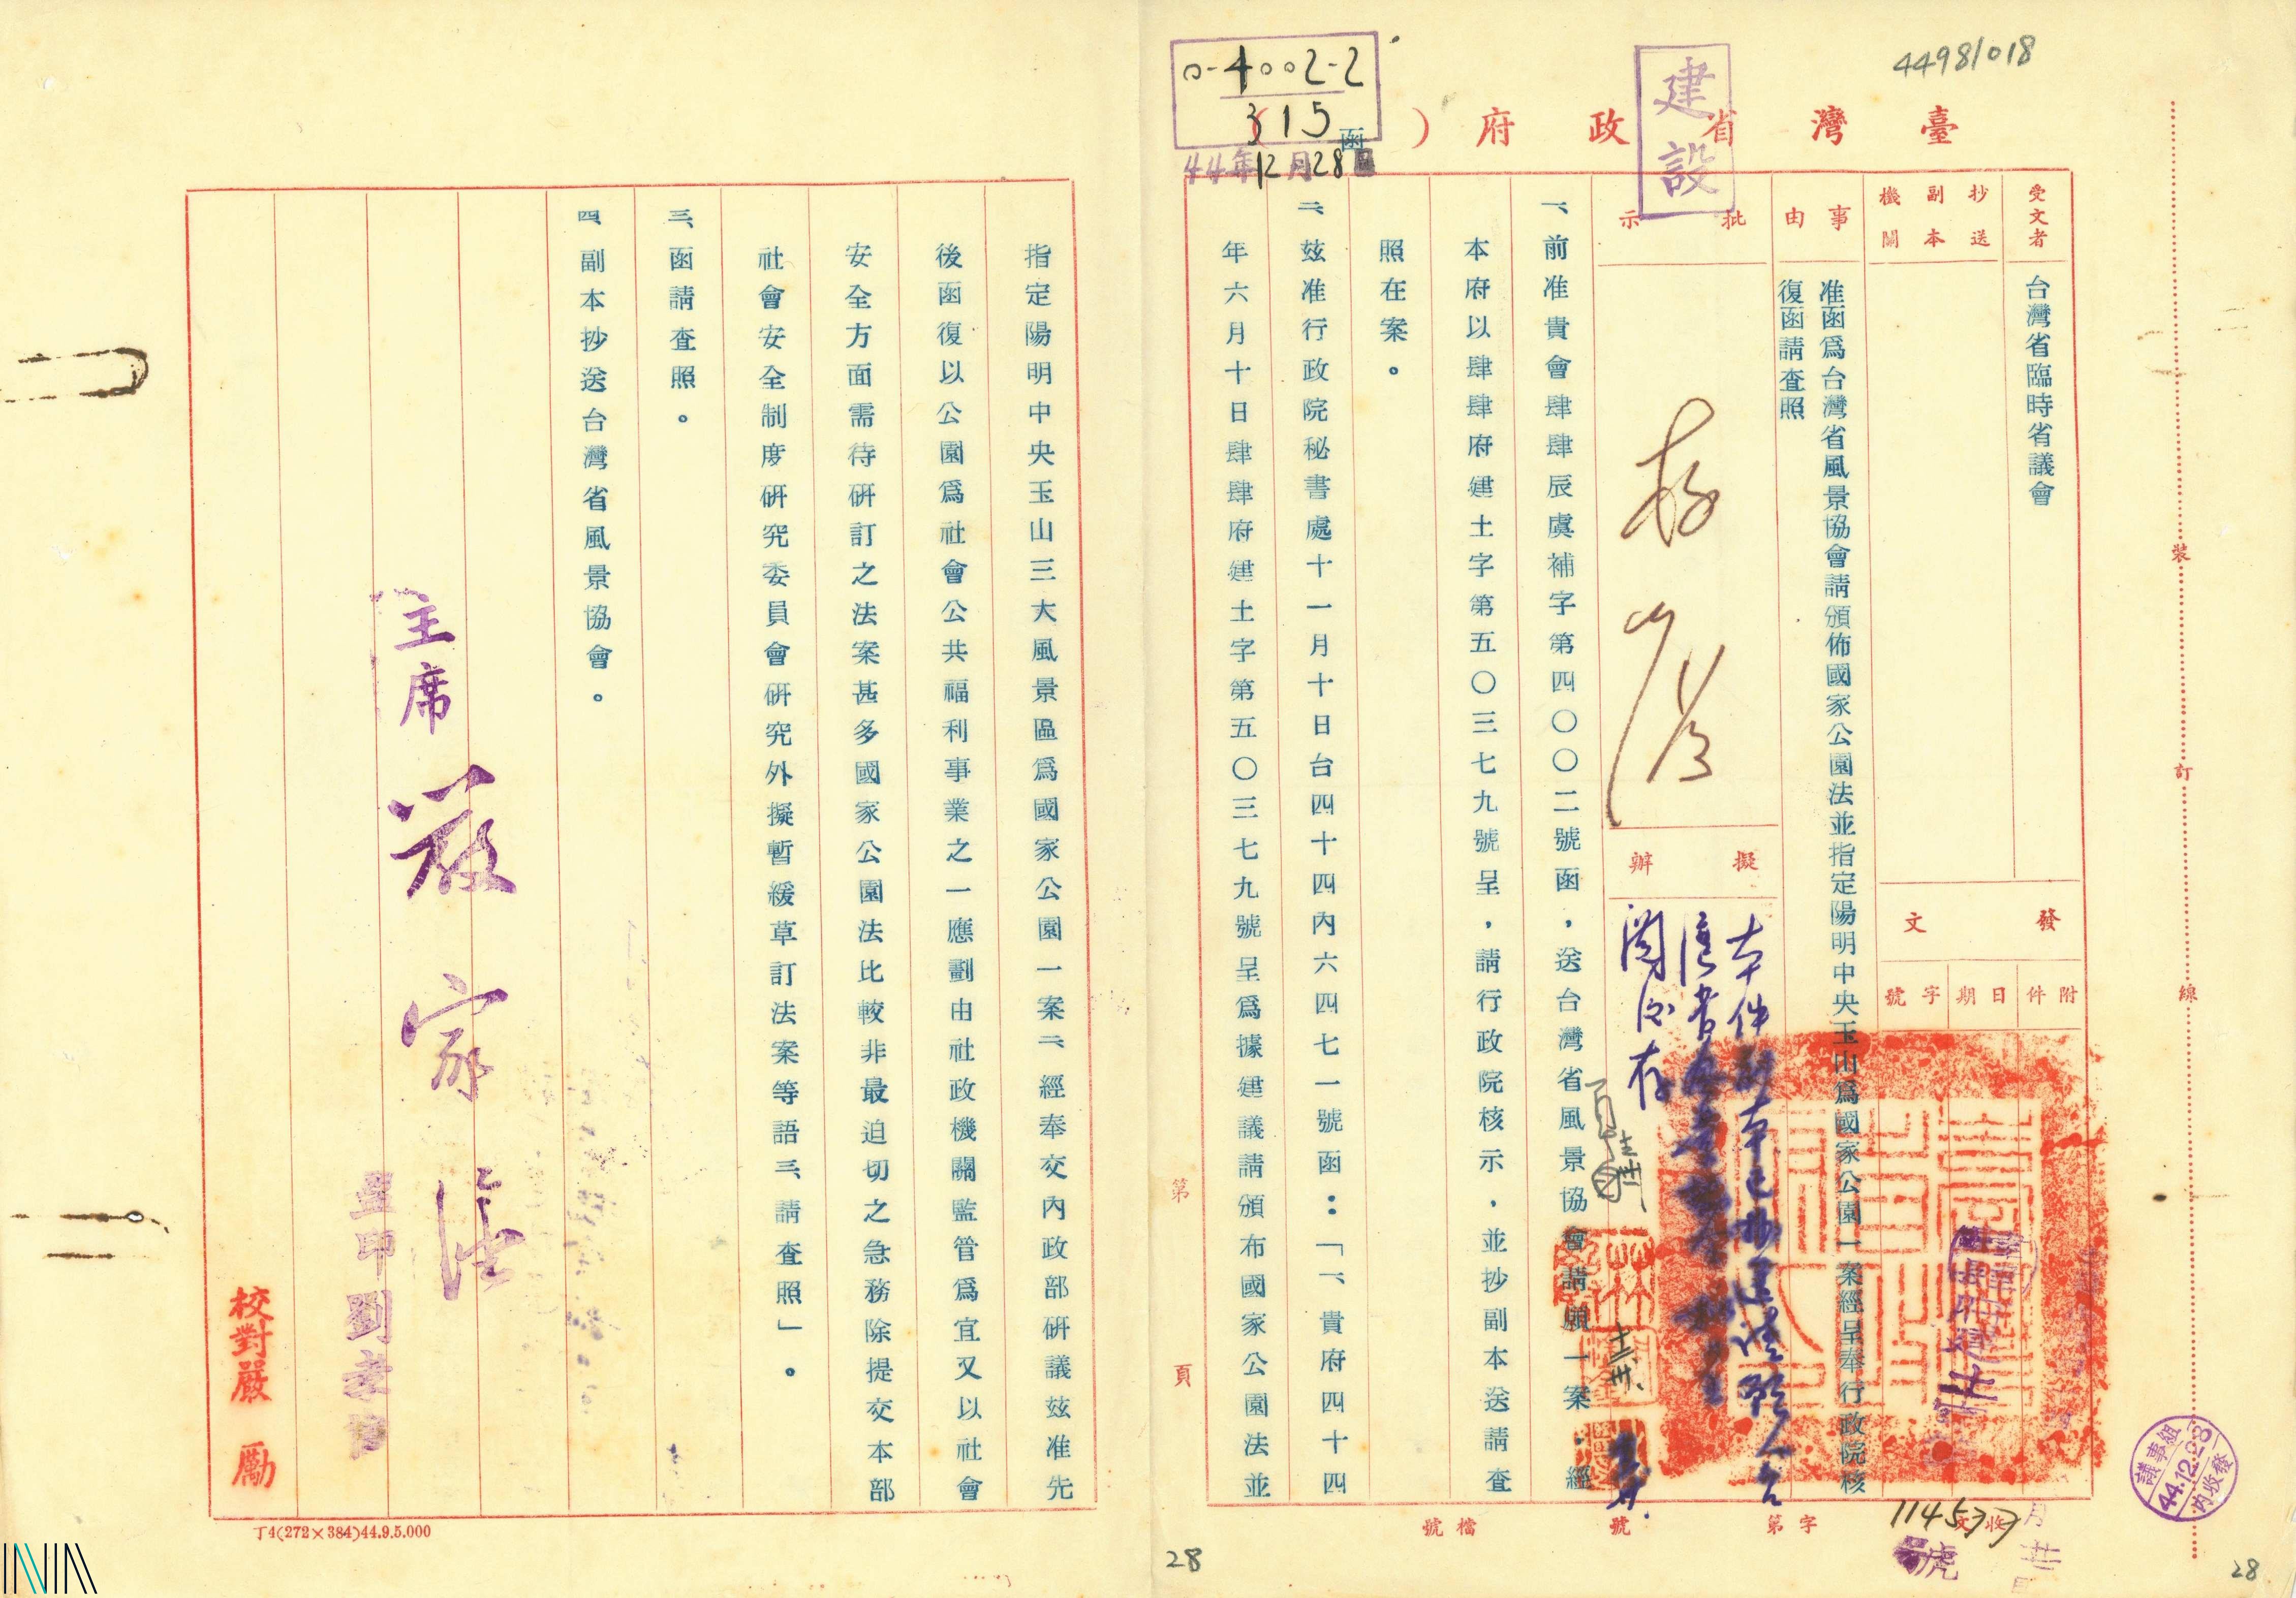 44981018
0-4002-2
315
44年12月28日
建設
臺灣省政府(函)
受文者
台灣省臨時省議會
抄送副本機關
發文
附件
日期
字號
事由
准函爲台灣省風景協會請頒佈國家公園法並指定陽明中央玉山爲國家公園一案經呈奉行政院核
復函請查照
批示
擬辦
本件副本已抄送請願人
閱後存
一、前准貴會肆肆辰虞補字第四〇〇二號函，送台灣省風景協會請願一案，經
本府以肆肆府建土字第五〇三七九號呈，請行政院核示，並抄副本送請查
照在案。
二、玆准行政院秘書處十一月十日台四十四內六四七一號函：「一、貴府四十四
年六月十日肆肆府建土字第五〇三七九號呈爲據建議請頒布國家公園法並
指定陽明中央玉山三大風景區爲國家公園一案二、經奉交內政部研議玆准先
後函復以公園爲社會公共福利事業之一應劃由社政機關監管爲宜又以社會
安全方面需待研訂之法案甚多國家公園法比較非最迫切之急務除提交本部
社會安全制度研究委員會研究外擬暫緩草訂法案等語三、請查照」。
三、函請查照。
四、副本抄送台灣省風景協會。
主席 嚴家淦
校對嚴勵
丁4(272×384)44.9.5.000
第 頁
裝 訂 線
收文 字第 號
檔號
114577
號
議事組
44.12.28
內收發
28
28